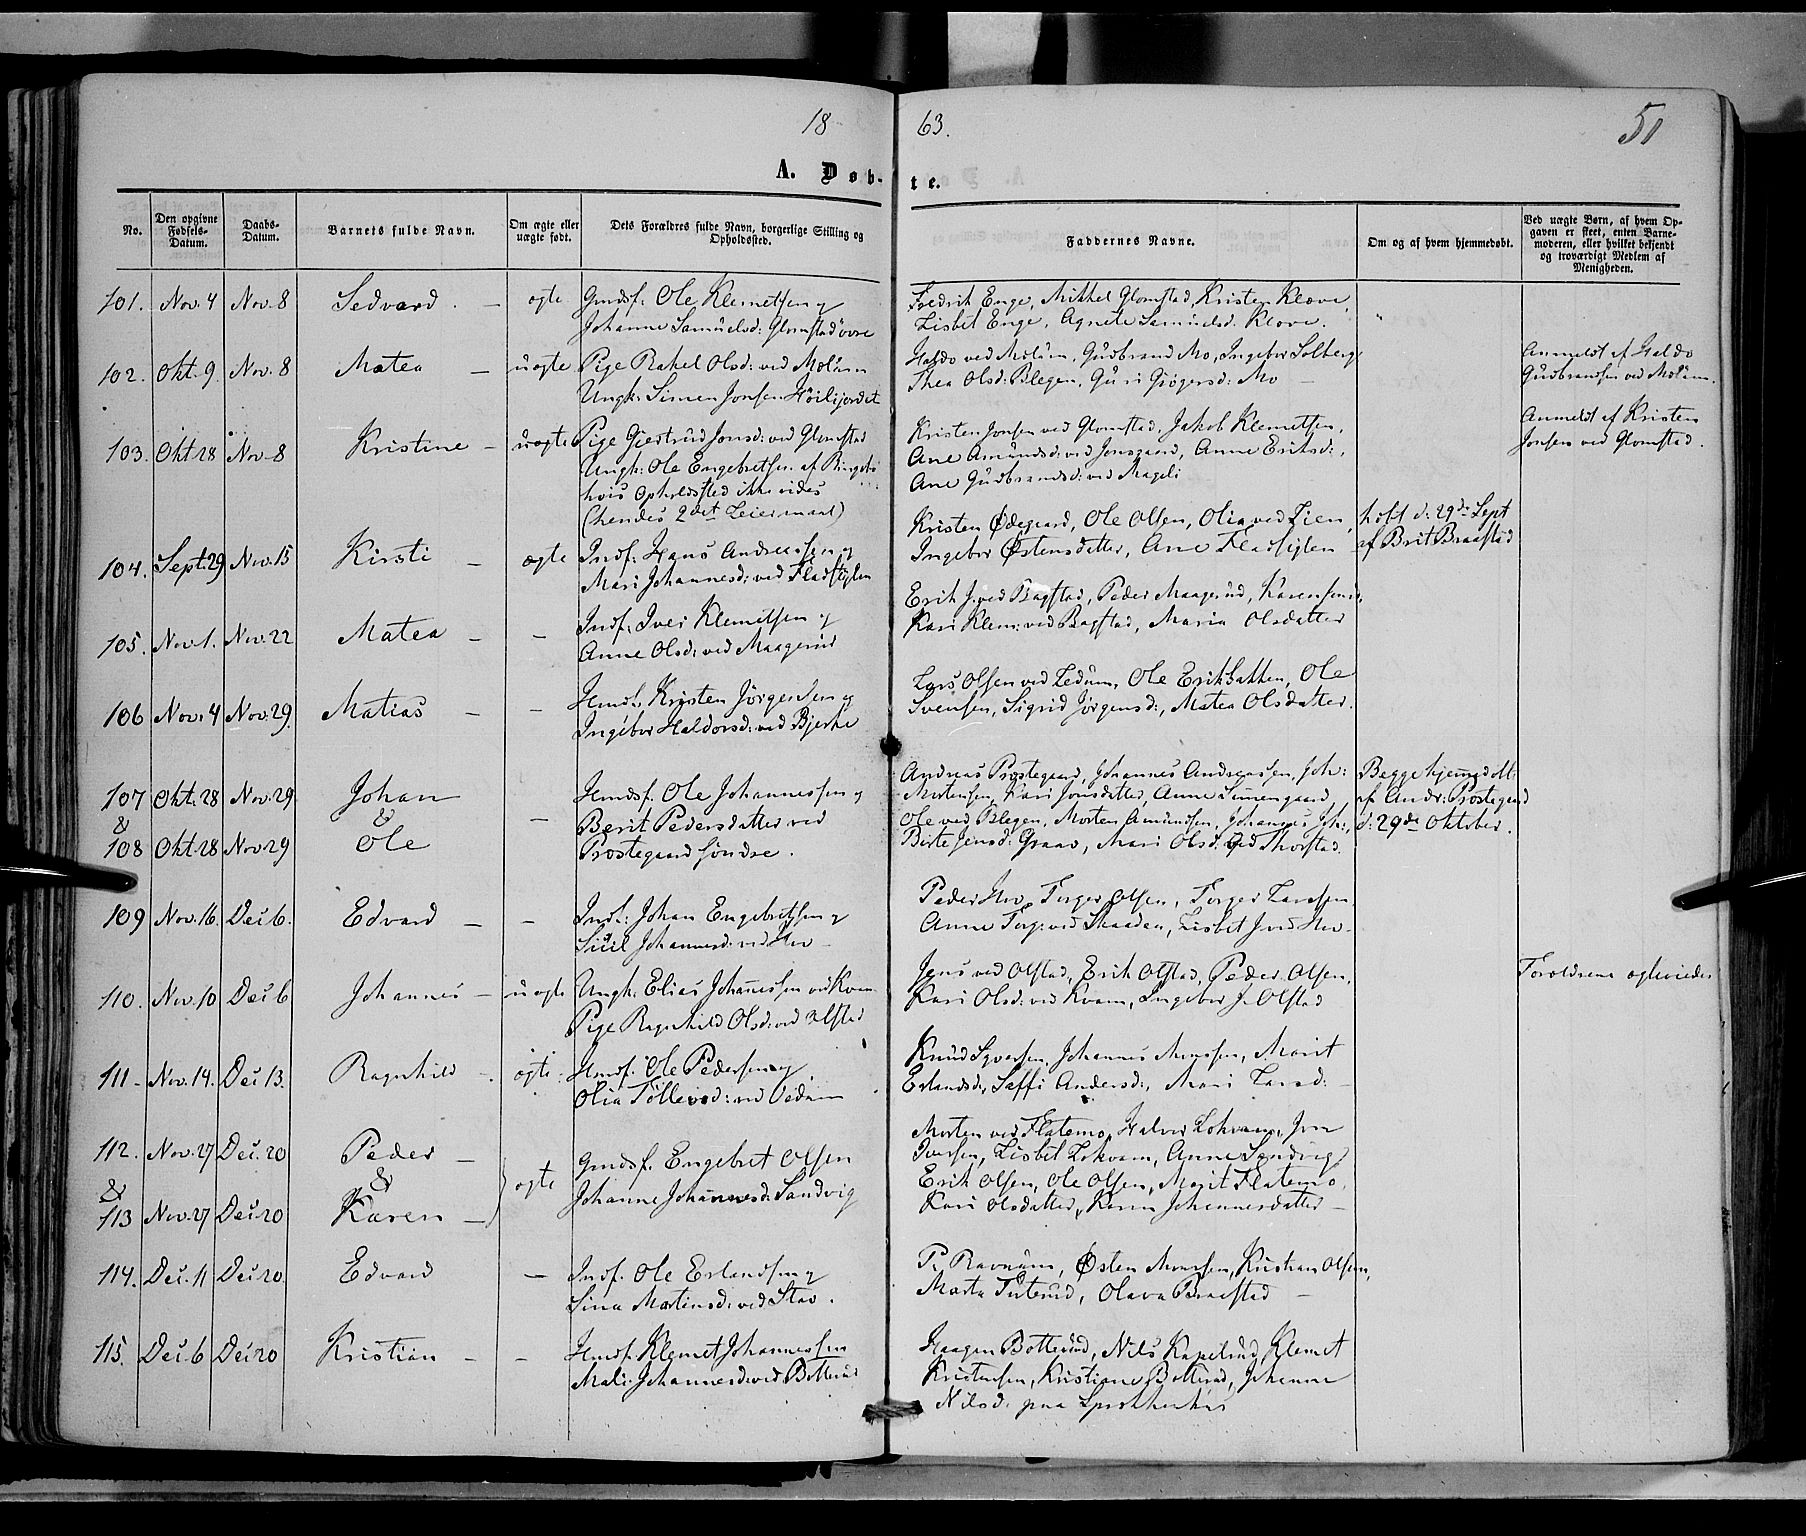 18 63. 51
A. Døb- te.
No. Den opgivne Fødsels-Datum. Daabs-Datum. Barnets fulde Navn. Om ægte eller uægte født. Dets Forældres fulde Navn, borgerlige Stilling og Opholdssted. Faddernes Navne. Om og af hvem hjemmedøbt. Ved uægte Børn, af hvem Opgaven er skeet, enten Barnemoderen, eller hvilket bekjendt og troværdigt Medlem af Menigheden.
101. Nov. 4 Nov. 8 Sedvard. - ægte Gmdsf. Ole Klemetsen og Fredrik Enge, Mikkel Glomstad, Kristen Kløve,
Johanne Samuelsd: Glomstad øvre Lisbet Enge, Agnete Samuelsd. Kløve.
102. Okt. 9. Nov. 8 Matea - uægte Pige Rakel Olsd: ved Molum Haldo ved Molum, Gudbrand Mo, Ingebor Solberg Anmeldt af Haldo
Ungk. Simen Jonsen Höilijordet Thea Olsd: Blegen, Guri Gjögersd: Mo - Gudbrandsen ved Molum.
103. Okt 28 Nov. 8 Kristine - uægte Pige Gjertrud Jonsd: ved Glomstad Kristen Jonsen ved Glomstad, Jakob Klemetsen, Anmeldt af Kristen
Ungk: Ole Engebretsen af Ringebo Ane Amundsd: ved Jonsgaard, Anne Eriksd:, Jonsen ved Glomstad.
hvis Opholdssted ikke vides Ane Gudbrandsd: ved Mageli
(hendes 2det Leiermaal)
104. Sept. 29 Nov. 15 Kirsti - ægte Indf: Hans Andreassen og Kristen Ødegaard, Ole Olsen, Olia ved Lien, høft d. 29de Sept
Mari Johannesd: ved Fladsiglen Ingebor Østensdatter, Ane Fladsiglen af Brit Braastad
105. Nov. 1. Nov. 22 Matea - - Indf: Iver Klemetsen og Erik J. ved Bagstad, Peder Maagerud,
Anne Olsd: ved Maagerud Kari Klem: ved Bagstad, Maria Olsdatter
106 Nov. 4 Nov. 29. Matias - - Kristen Jörgensen og Lars Olsen ved Ledum, Ole Ole
Ingebor Haldorsd: ved Bjerke Svensen, Sigrid Jørgensd:, Matea Olsdatter.
107 Okt. 28 Nov. 29. Johan Hmdsf. Ole Johannessen og Andreas Prostegaard, Johannes Andreassen, Joh: Begge hjemmedøbt
& & - Berit Pedersdatter ved Mortensen, Kari Jonsdatter, Anne Simengaard af Andr: Prostegaard
108 Okt 28 Nov. 29 Ole Prostegaard söndre. Ole ved Blegen, Morten Amundsen, Johannes Joh:, d: 29de Oktober.
Birte Jensd: Graav, Mari Olsd. ved Thorstad.
109 Nov. 16. Dec 6. Edvard - - Indf: Johan Engebretsen og Peder Hov, Torger Olsen, Torger Larssen
Johannesd: ved Hov - Anne Torg: ved Skaaden, Lisbet J. ved Hov -
110. Nov. 10 Dec 6 Johannes - uægte Ungk: Elias Johannessen ved Kvam Jens ved Olstad, Erik Olstad, Peder Olsen, Foreldrene
Pige Ragnhild Olsd: ved Olstad Kari Olsd: ved Kvam, Ingebor J. Olstad
111 - Nov. 14. Dec 13. Ragnhild - ægte. Hmdsf. Ole Pedersen og Knud Syversen, Johannes Monssen, Marit
Olia Tollevsd: ved Vedum Erlandsd:, Andersd:, Mari Larsd: -
112. Nov. 27 Dec. 20 Peder - Gmdsf. Engebret Olsen Morten ved Flatemo, Halvor Lokvam, Iver
& & ægte Johanne Johannesd: Sandvig Iversen, Lisbet Lokvam, Anne Sandvig
113 Nov. 27 Dec. 20 Karen - Erik Olsen, Ole Olsen, Marit Flatemo,
Kari Olsdatter, Karen Johannesdatter -
114. Dec. 11 Dec. 20 Edvard - Indf. Ole Erlandsen og P. Ravnum, Østen Monssen, Kristian Olsen,
Sina Martinsd: ved Stav. Marta Olava Braastad -
115. Dec. 6 Dec 20 Kristian - - Hmdsf. Klemet Johannessen Haagen Botterud, Nils Kapelrud, Klemet
Mali Johannesd: ved Botterud Kristensen, Kristiane Botterud, Johanne
Nilsd. paa